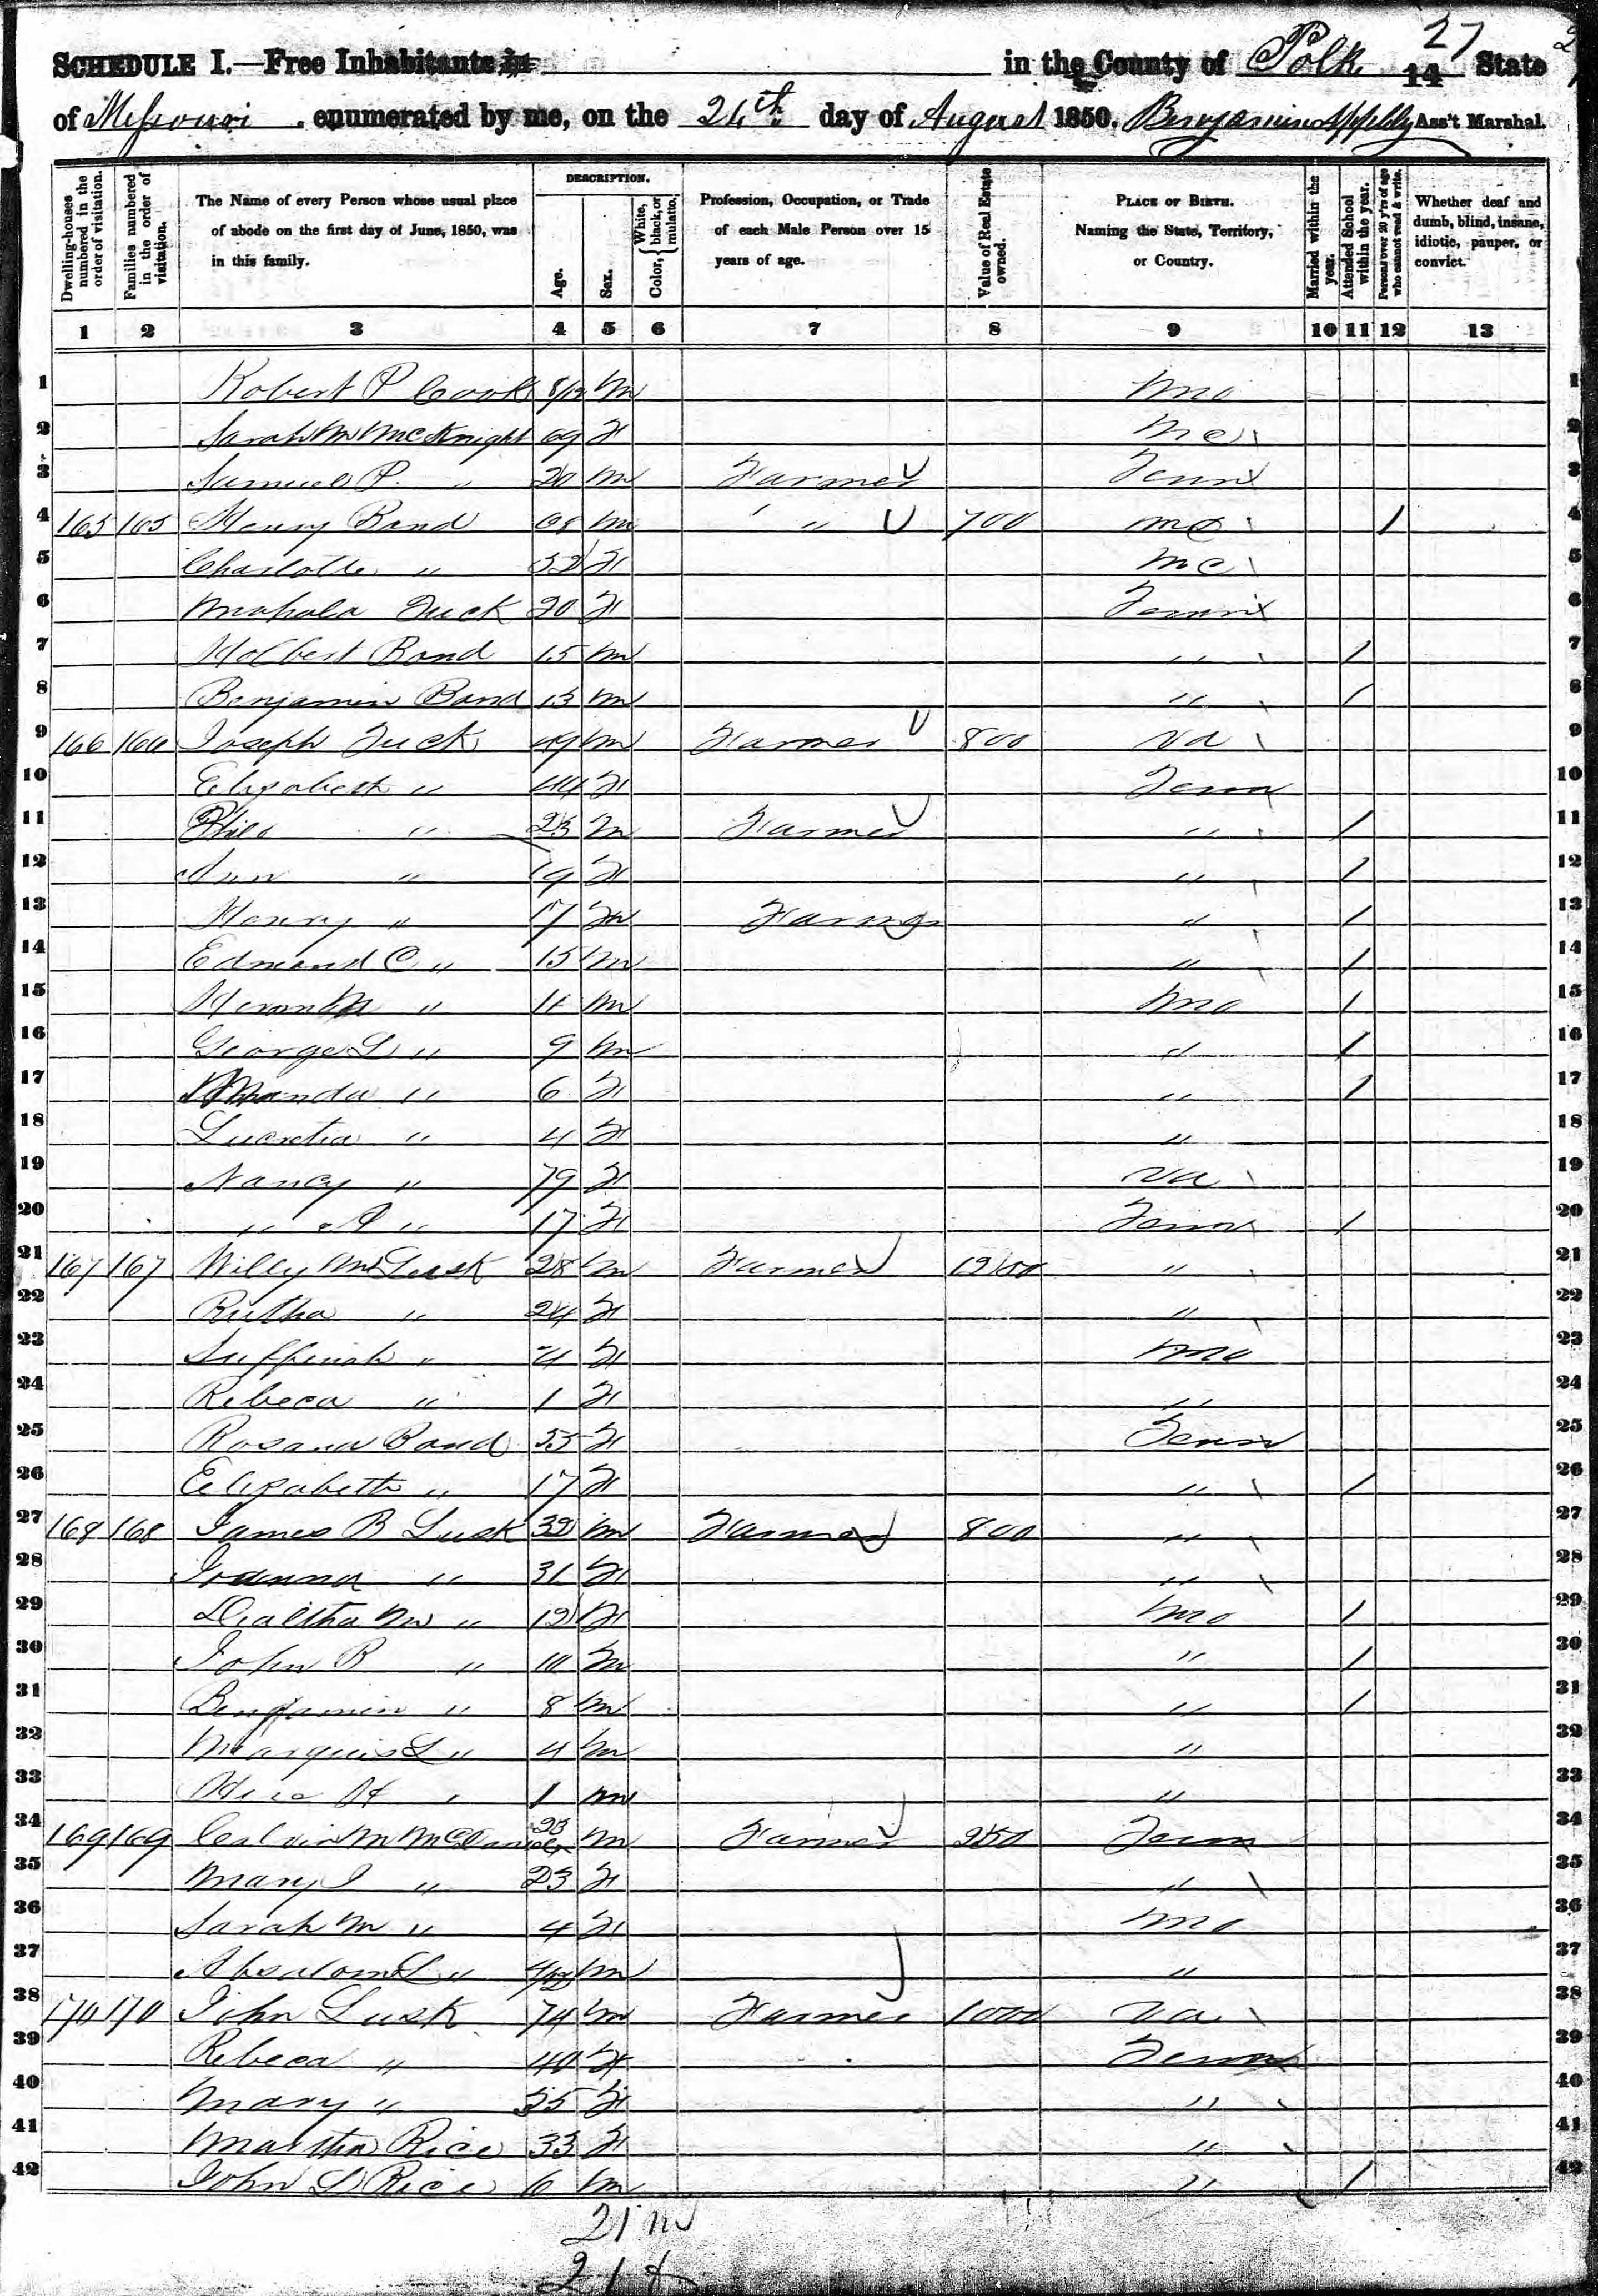 27
SCHEDULE I.—Free Inhabitants in in the County of Polk 14 State
of Missouri enumerated by me, on the 26th day of August 1850. Benjamin Appleby Ass't Marshal.
Dwelling-houses numbered in the order of visitation.
Families numbered in the order of visitation.
The Name of every Person whose usual place of abode on the first day of June, 1850, was in this family.
DESCRIPTION.
Age.
Sex.
Color, { White, black, or mulatto.
Profession, Occupation, or Trade of each Male Person over 15 years of age.
Value of Real Estate owned.
PLACE OF BIRTH. Naming the State, Territory, or Country.
Married within the year.
Attended School within the year.
Persons over 20 y'rs of age who cannot read & write.
Whether deaf and dumb, blind, insane, idiotic, pauper, or convict.
1 2 3 4 5 6 7 8 9 10 11 12 13
1 Robert P Cook 8/12 m Mo 1
2 Sarah M McKnight 69 F 2
3 Samuel P. " 20 m Farmer Tenn 3
4 165 165 Henry Band 68 m " 700 / 4
5 Charlotte " 52 F 5
6 Mahala Tuck 20 F Tenn 6
7 Holbert Band 15 m " / 7
8 Benjamin Band 13 m " / 8
9 166 166 Joseph Tuck 49 m Farmer 800 Va 9
10 Elizabeth " 44 F Tenn 10
11 " 23 m Farmer " / 11
12 Ann " 19 F " / 12
13 Henry " 17 m Farmer " / 13
14 Edmond C " 15 m " / 14
15 " 11 m Mo / 15
16 George L " 9 m " / 16
17 Amanda " 6 F " / 17
18 Lucretia " 4 F " 18
19 Nancy " 79 F Va 19
20 " A " 17 F Tenn / 20
21 167 167 Willy Lusk 28 m Farmer 1200 " 21
22 Rutha " 24 F " 22
23 " 4 F Mo 23
24 Rebeca " 1 F " 24
25 Rosana Band 55 F Tenn 25
26 Elizabeth " 17 F " / 26
27 168 168 James B Lusk 32 m Farmer 800 " 27
28 Joanna " 31 F " 28
29 Dialtha M " 12 F Mo / 29
30 John B " 10 m " / 30
31 Benjamin " 8 m " / 31
32 Marquis L " 4 m " 32
33 H " 1 m " 33
34 169 169 Calvin M McDaniel 23 m Farmer 250 Tenn 34
35 Mary J " 23 F " 35
36 Sarah M " 4 F Mo 36
37 Absalom L " 4/12 m " 37
38 170 170 John Lusk 74 m Farmer 1000 Va 38
39 Rebeca " 40 F Tenn 39
40 Mary " 35 F " 40
41 Martha Rice 33 F " 41
42 John L Rice 6 m " / 42
21 m
21 f